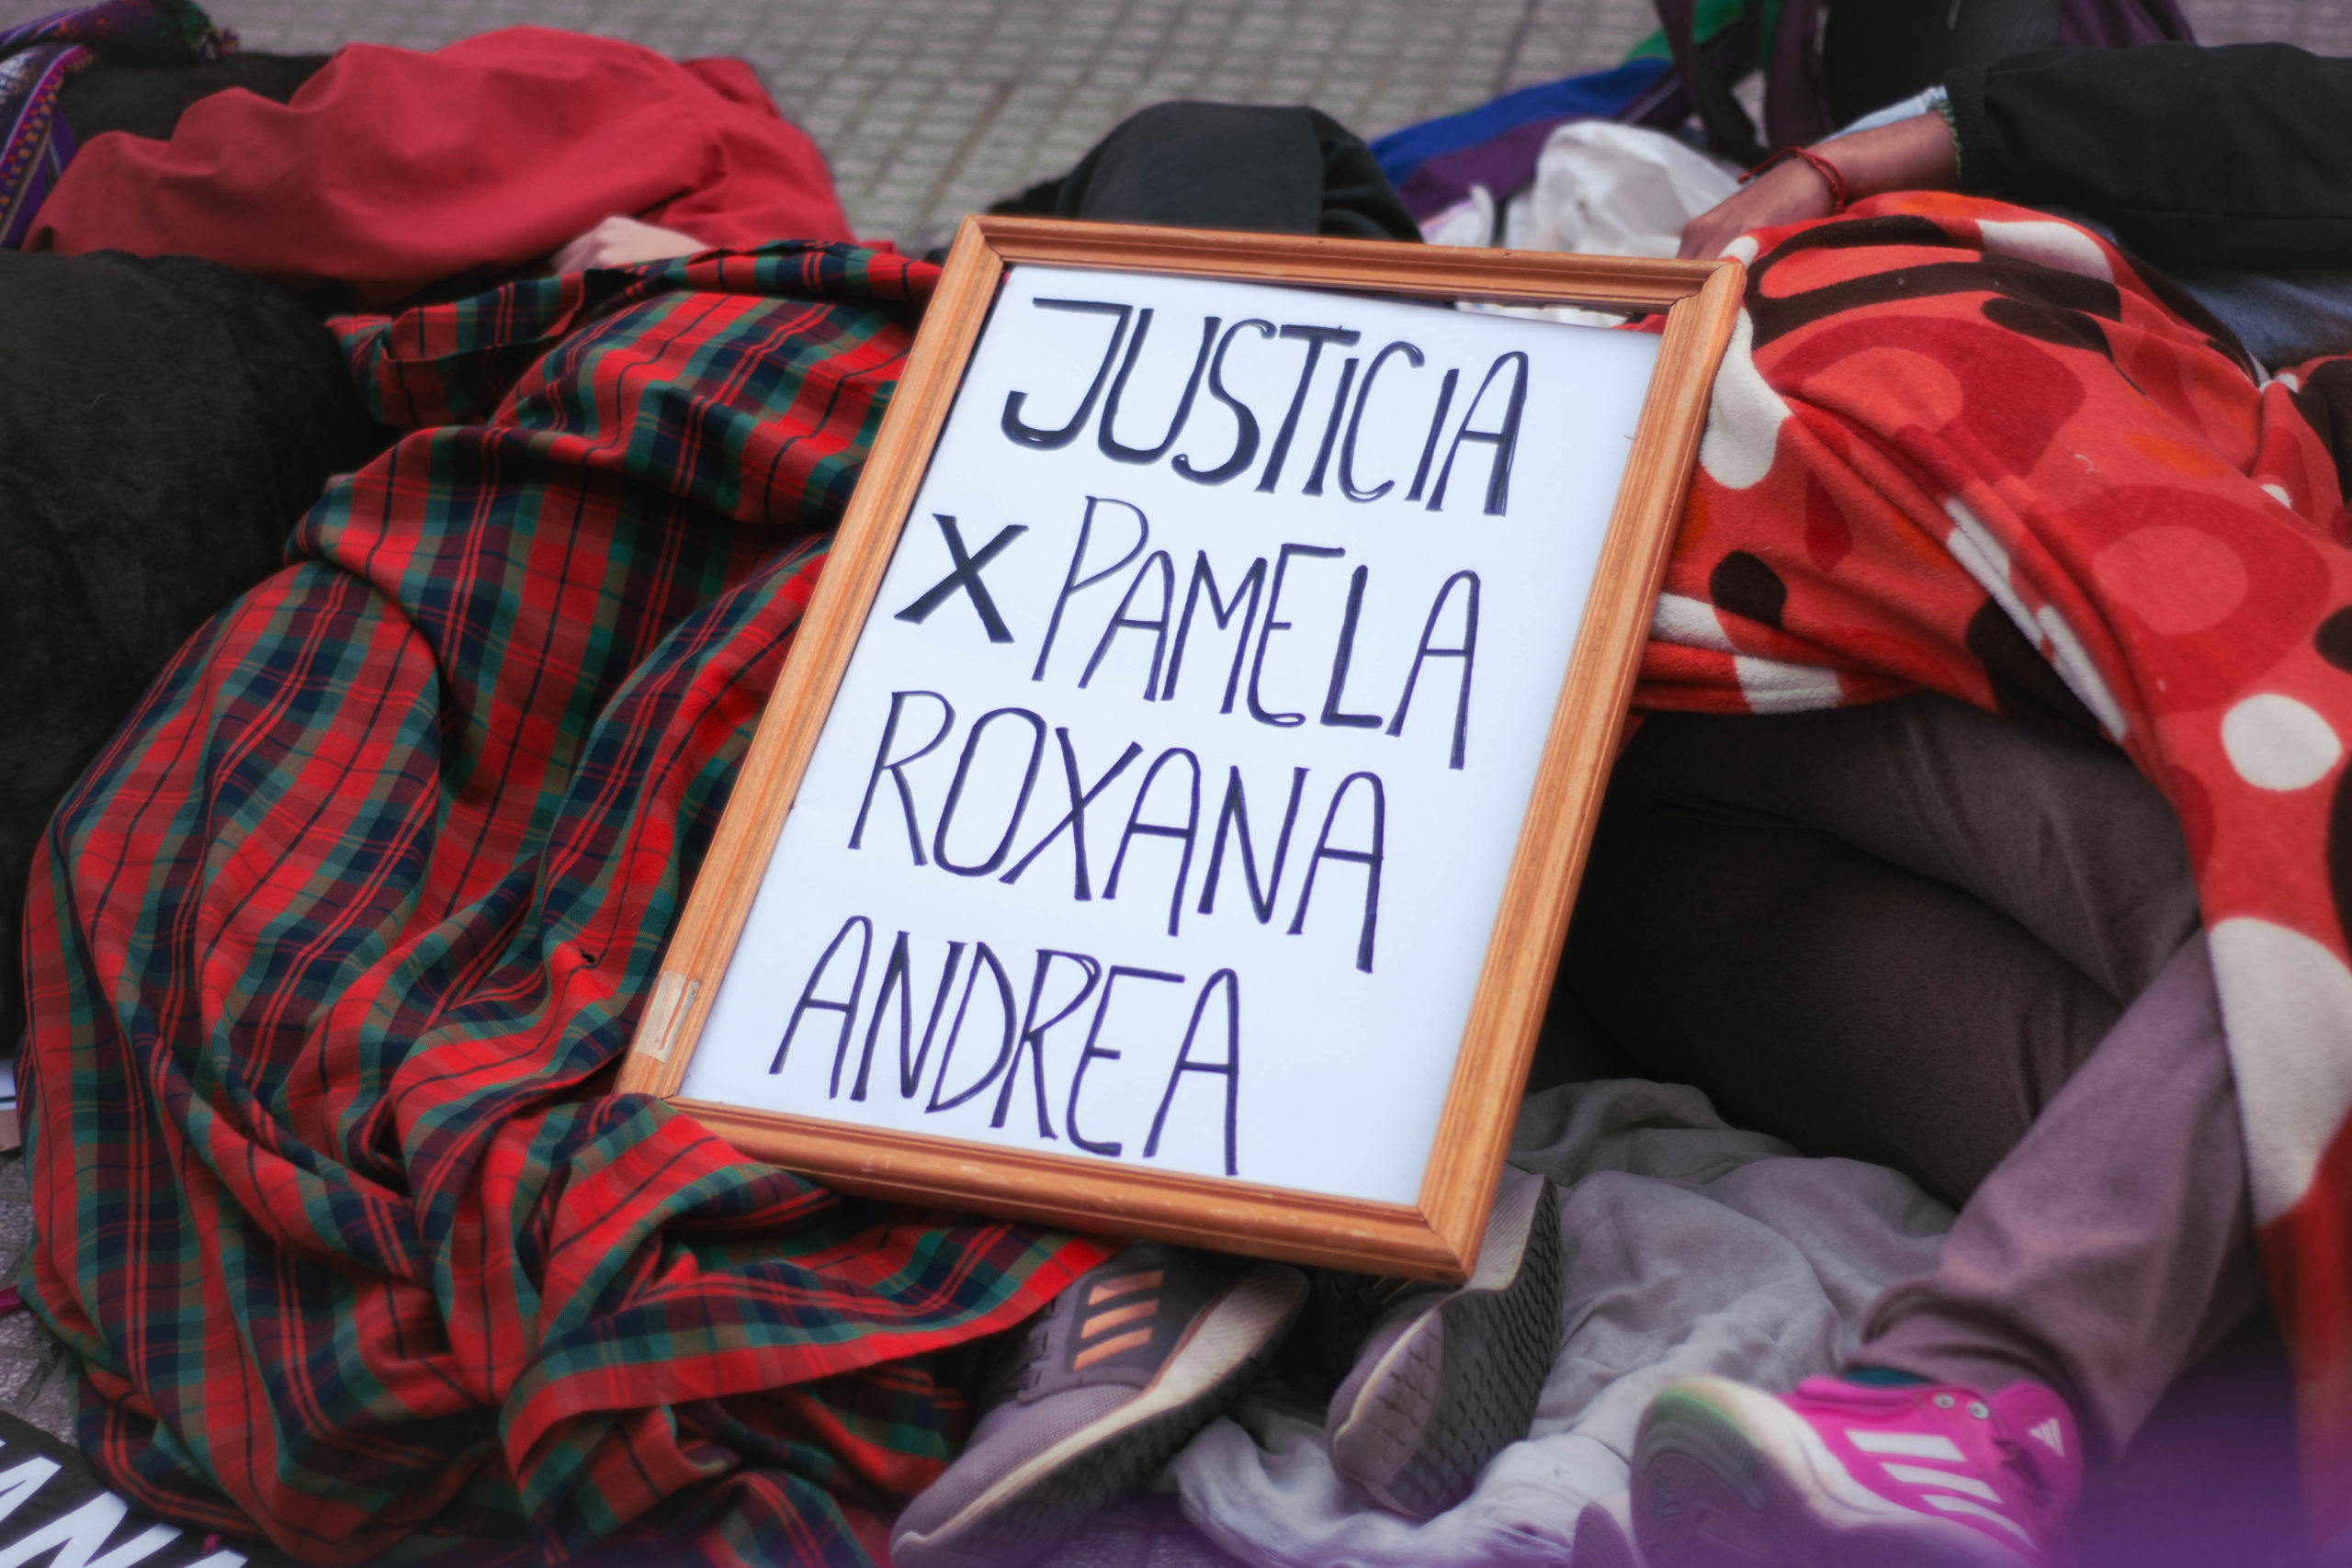 JUSTICIA
X PAMELA
ROXANA
ANDREA